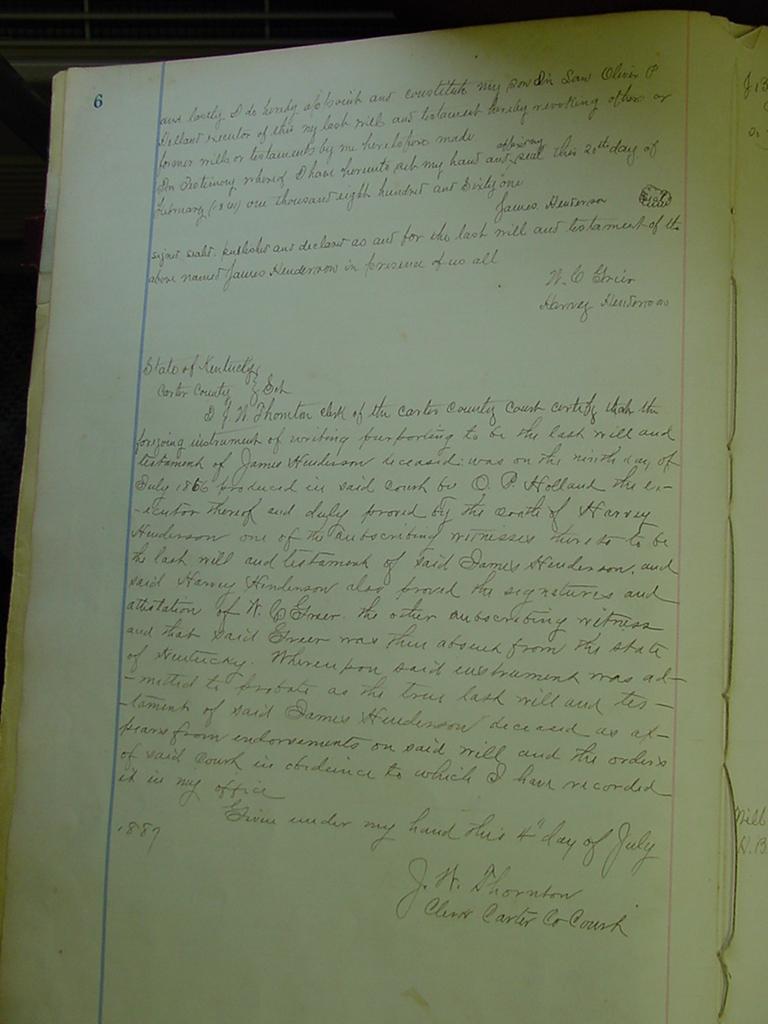 6
and lastly I do hereby appoint and constitute my son in Law Oliver P
Holland executor of this my last will and testament hereby revoking others or
former wills or testaments by me heretofore made
In Testimony whereof I have hereunto set my hand and affixing seal this 20th day of
February (1861) one thousand eight hundred and Sixty one
James Henderson Seal
signed sealed. published and declared as and for the last will and testament of the
above named James Henderson in presence of us all
W. C Grier
Harvey Henderson
State of Kentucky
Carter County } Sct
I J. W. Thornton clerk of the Carter County Court certify that the
foregoing instrument of writing purporting to be the last will and
testament of James Henderson deceased: was on the ninth day of
July 1866 produced in said court by O. P. Holland the ex-
-ecutor thereof and duly proved by the oath of Harvey
Henderson one of the subscribing witnesses thereto to be
the last will and testament of said James Henderson, and
said Harvey Henderson also proved the signatures and
attestation of W. C Greer. the other subscribing witness
and that said Greer was then absent from the state
of Kentucky. Whereupon said instrument was ad-
-mitted to probate as the true last will and tes-
-tament of said James Henderson deceased as ap-
pears from endorsements on said will and the orders
of said Court in obedience to which I have recorded
it in my office
Given under my hand this 4th day of July
1887
J. W. Thornton
Clerk Carter Co Court